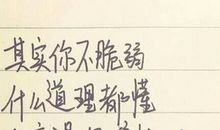 其实你不脆弱
什么道理都懂